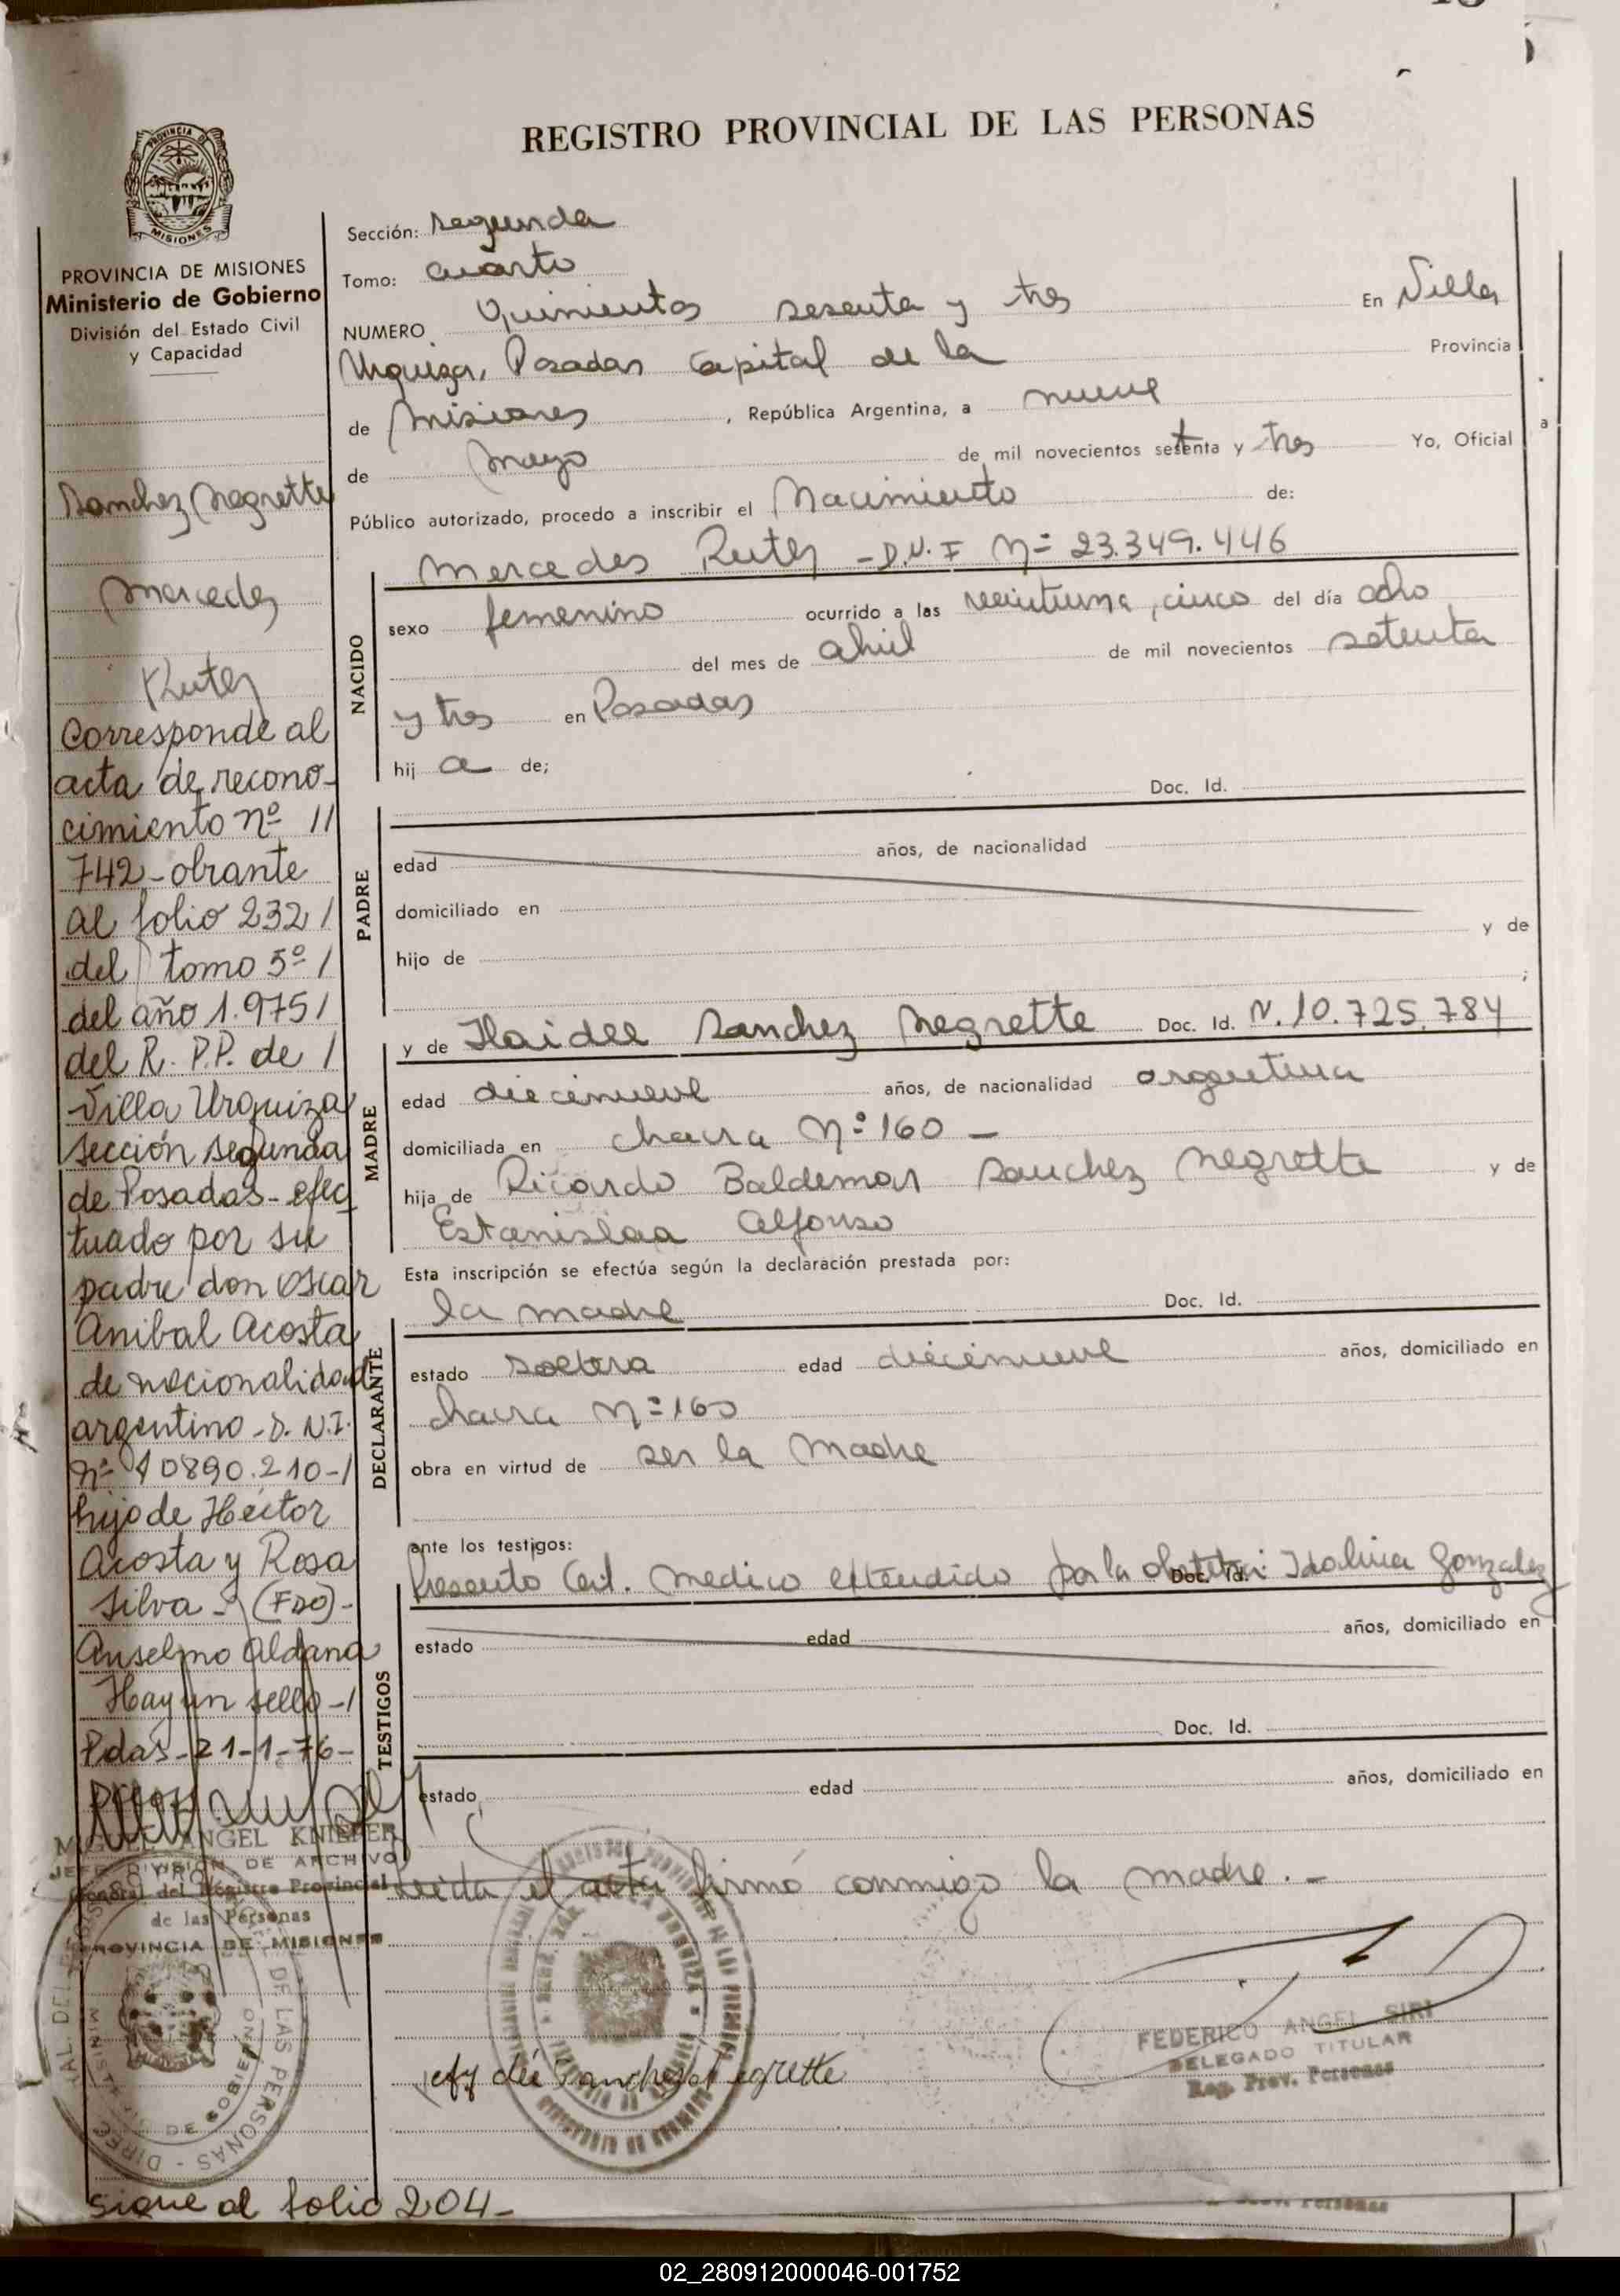 REGISTRO PROVINCIAL DE LAS PERSONAS
PROVINCIA DE
MISIONES
PROVINCIA DE MISIONES
Ministerio de Gobierno
División del Estado Civil
y Capacidad
Sanchez Negrette
Mercedes
Corresponde al
acta de recono-
cimiento nº 11
742 - obrante
al folio 232 /
del tomo 5º /
del año 1.975 /
del R. P.P. de /
Villa Urquiza
sección segunda
de Posadas - efec
tuado por su
padre don Oscar
Anibal Acosta
de nacionalidad
argentino - D.N.I.
nº 10890.210 - /
hijo de Héctor
Acosta y Rosa
Silva - (FDO) -
Anselmo Aldana
Hay un sello - /
Pdas - 21-1-76 -
MIGUEL ANGEL KNIEPER
JEFE DIVISION DE ARCHIVO
General del Registro Provincial
de las Personas
PROVINCIA DE MISIONES
Sigue al folio 204 -
Sección: segunda
Tomo: cuarto
NUMERO Quinientos sesenta y tres En Villa
Urquiza, Posadas Capital de la Provincia
de Misiones, República Argentina, a nueve
de Mayo de mil novecientos setenta y tres Yo, Oficial
Público autorizado, procedo a inscribir el Nacimiento de:
Mercedes - D.N.I Nº 23.349.446
NACIDO
sexo femenino ocurrido a las veintiuna, cinco del día ocho
del mes de abril de mil novecientos setenta
y tres en Posadas
hij a de;
Doc. Id.
PADRE
edad años, de nacionalidad
domiciliado en
hijo de y de
;
y de Haidee Sanchez Negrette Doc. Id. N. 10.725.784
MADRE
edad diecinueve años, de nacionalidad argentina
domiciliada en chacra Nº 160 -
hija de Ricardo Baldemar Sanchez Negrette y de
Estanislaa Alfonso
Esta inscripción se efectúa según la declaración prestada por:
la madre Doc. Id.
DECLARANTE
estado soltera edad diecinueve años, domiciliado en
chacra Nº 160
obra en virtud de ser la madre
ante los testigos:
Presento Cert. medico extendido por la Doc. Id. Idalina Gonzalez
TESTIGOS
estado edad años, domiciliado en
Doc. Id.
estado edad años, domiciliado en
Leida el acta firmó conmigo la madre. -
Sanchez Negrette
FEDERICO ANGEL SIRI
DELEGADO TITULAR
Reg. Prov. Personas
02_280912000046-001752